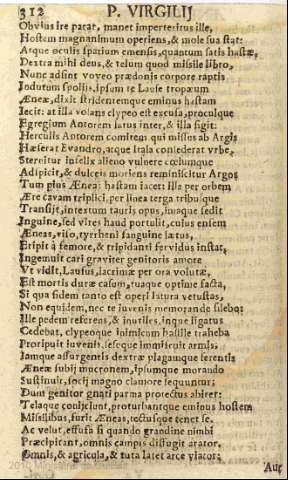 312 P. VIRGILIJ
Obvius ire parat, manet imperterritus ille,
Hostem magnanimum operiens, & mole sua stat:
Atque oculis spatium emensus, quantum satis hastæ,
Dextra mihi deus, & telum quod missile libro,
Nunc adsint voveo prædonis corpore raptis
Indutum spoliis, ipsum te Lause tropæum
Æneæ, dixit stridentemque eminus hastam
Iecit: at illa volans clypeo est excusa, proculque
Egregium Antorem latus inter, & ilia figit:
Herculis Antorem comitem qui missus ab Argis
Hæserat Evandro, atque Itala consederat vrbe,
Sternitur infelix alieno vulnere cœlumque
Adspicit, & dulceis moriens reminiscitur Argos
Tum pius Æneas hastam iacet: illa per orbem
Ære cavum triplici, per linea terga tribusque
Transijt, intextum tauris opus, imaque sedit
Inguine, sed vires haud portulit, ocius ensem
Æneas, viso, tyrrheni sanguine lætus,
Eripit à femore, & tripidanti fervidus instat,
Ingemuit cari graviter genitoris amore
Vt vidit, Lausus, lacrimæ per ora volutæ,
Est mortis duræ casum, tuaque optime facta,
Si qua fidem tanto est operi latura vetustas,
Non equidem, nec te iuvenis memorande silebo:
Ille pedem referens, & inutiles, inque ligatus
Cedebat, clypeoque inimicum hastile traheba
Proripuit iuvenis, seseque immiscuit armis,
Iamque assurgentis dextræ plagamque ferentis
Æneæ subij mucronem, ipsumque morando
Sustinuit, socij magno clamore sequuntur:
Dum genitor gnati parma protectus abiret:
Telaque conijciunt, proturbantque eminus hostem
Missilibus, furit Æneas, tectusque tenet se,
Ac velut, effusa si quando grandine nimbi
Præcipitant, omnis campis disfugit arator,
Omnis, & agricula, & tuta latet arce viator:
Aut